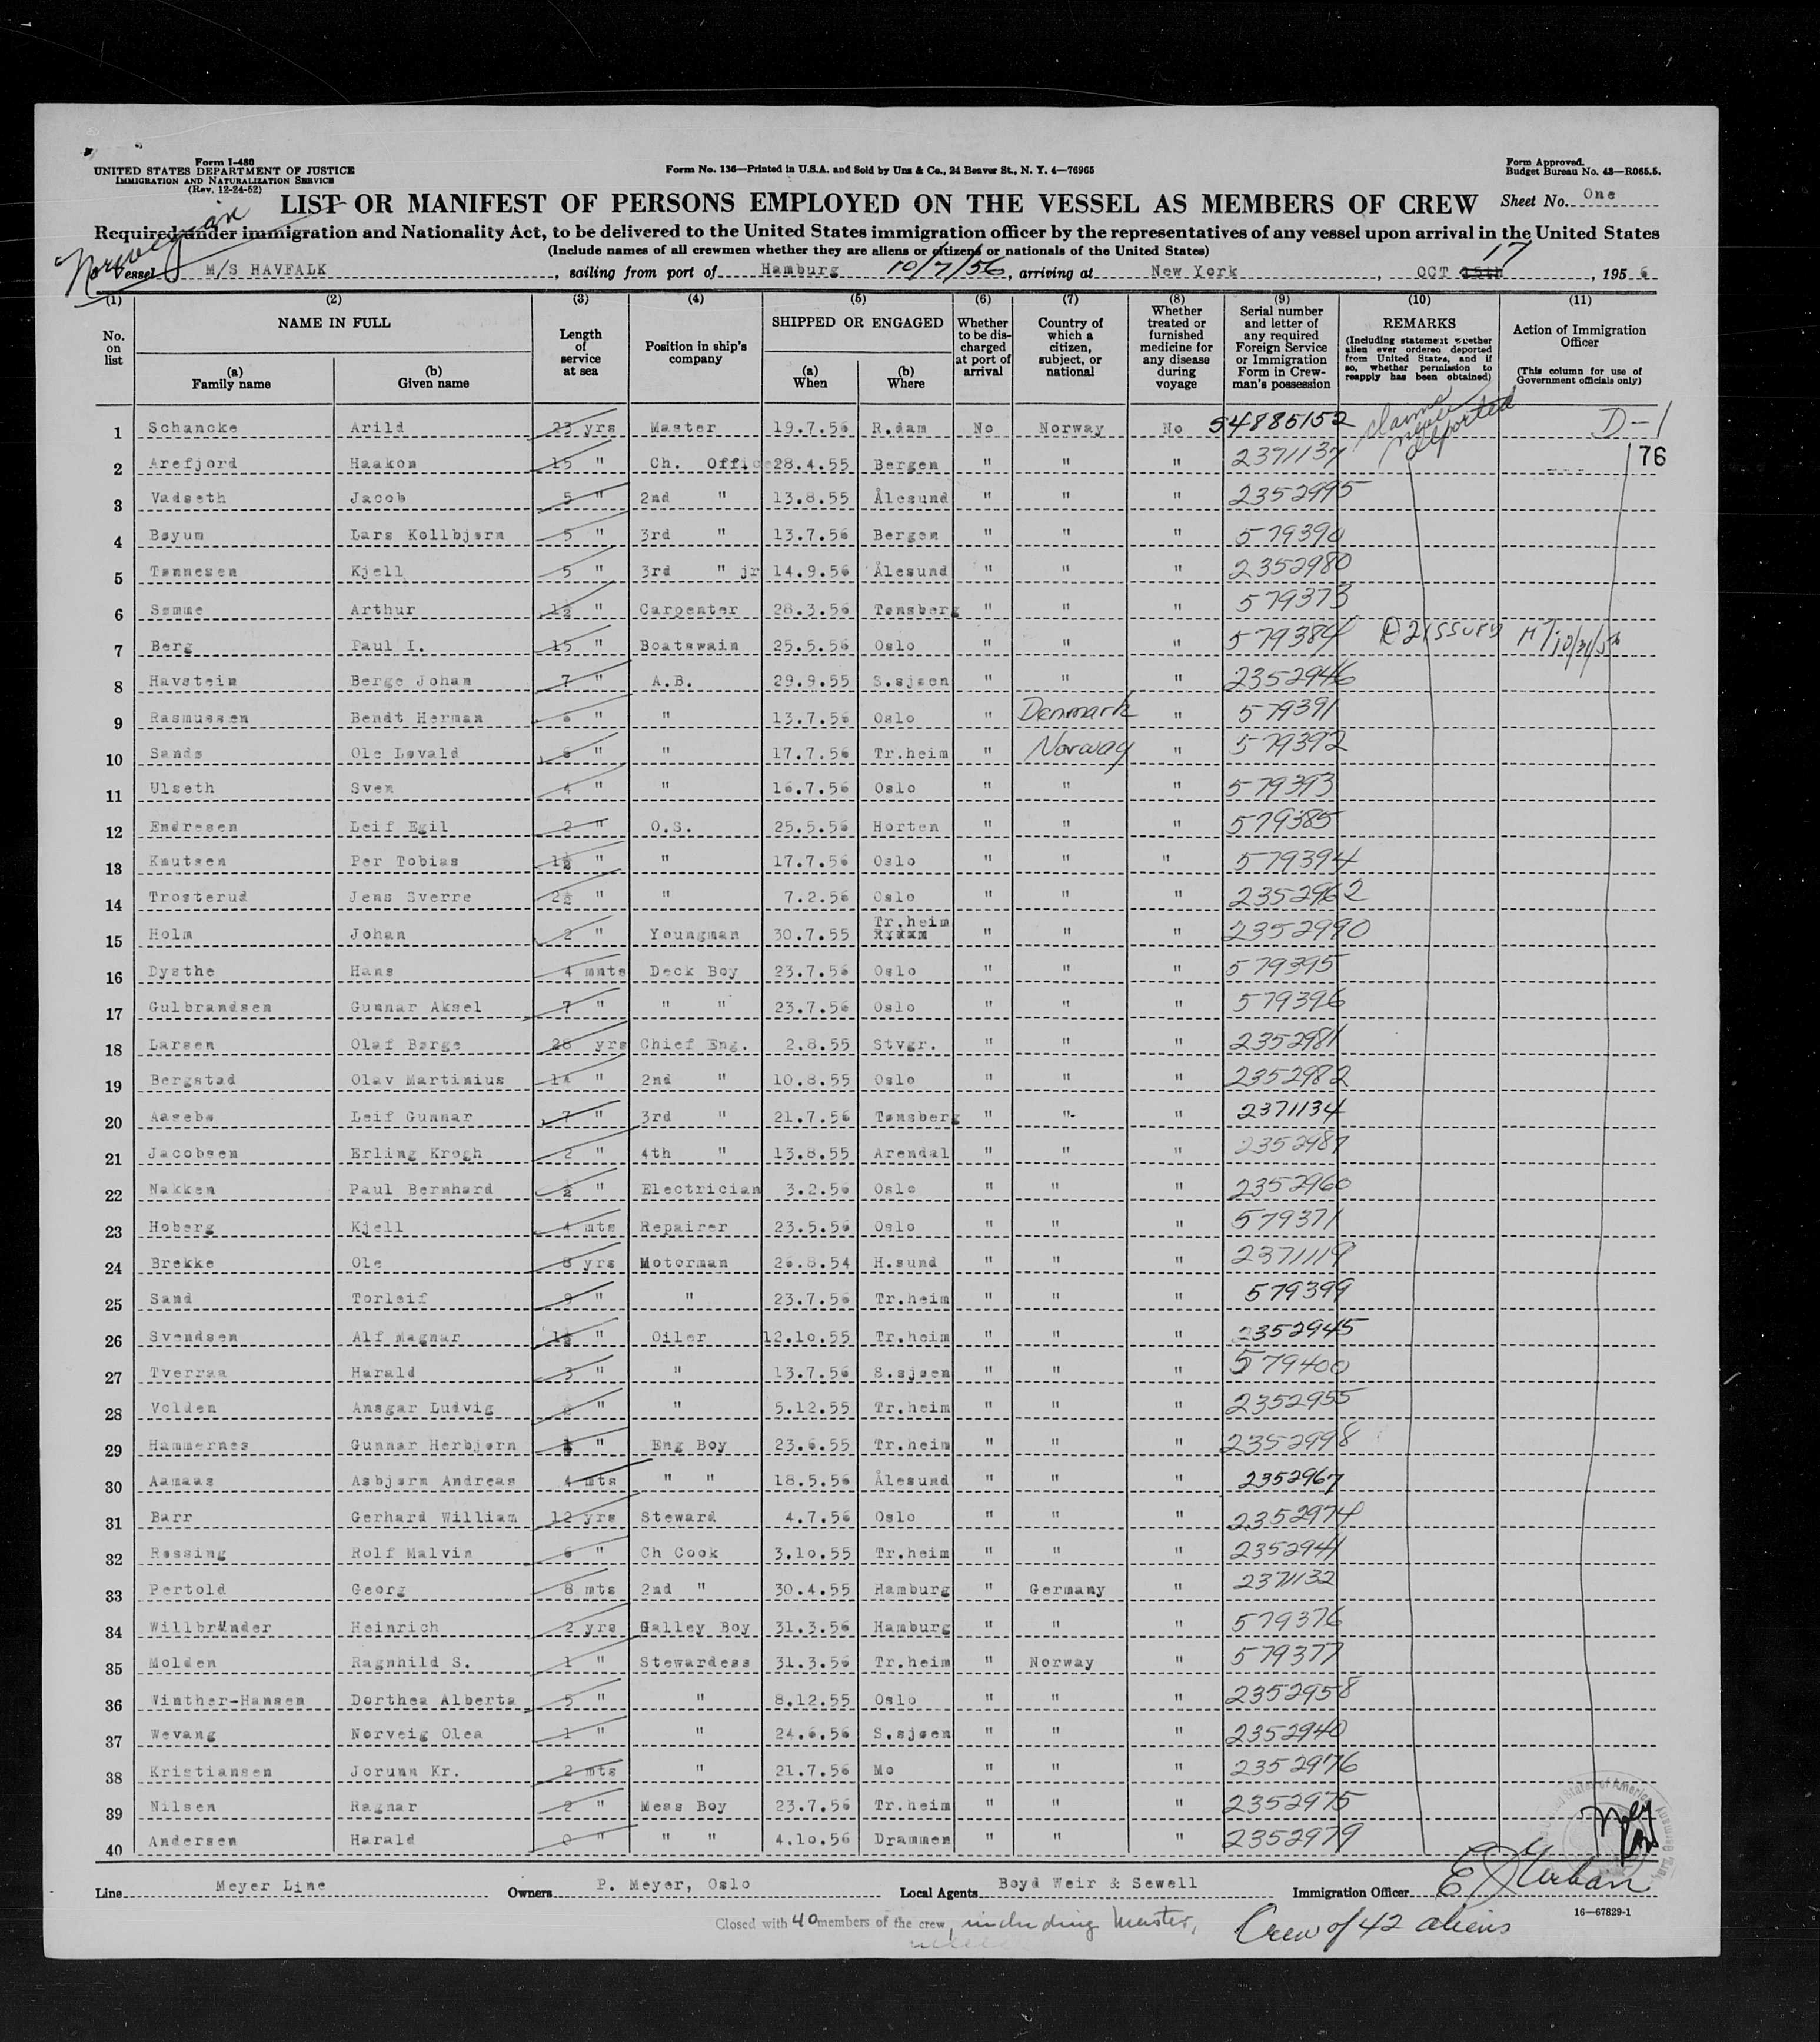 Form I-480
UNITED STATES DEPARTMENT OF JUSTICE
IMMIGRATION AND NATURALIZATION SERVICE
(Rev. 12-24-52)
Form No. 136—Printed in U.S.A. and Sold by Unz & Co., 24 Beaver St., N. Y. 4—76965
Form Approved.
Budget Bureau No. 43—R065.5.
LIST OR MANIFEST OF PERSONS EMPLOYED ON THE VESSEL AS MEMBERS OF CREW
Sheet No. One
Required under immigration and Nationality Act, to be delivered to the United States immigration officer by the representatives of any vessel upon arrival in the United States
(Include names of all crewmen whether they are aliens or citizens or nationals of the United States)
Norwegian
Vessel M/S HAVFALK, sailing from port of Hamburg 10/7/56, arriving at New York, OCT 17, 1956
(1) (2) (3) (4) (5) (6) (7) (8) (9) (10) (11)
No. on list
NAME IN FULL
(a) Family name
(b) Given name
Length of service at sea
Position in ship's company
SHIPPED OR ENGAGED
(a) When
(b) Where
Whether to be discharged at port of arrival
Country of which a citizen, subject, or national
Whether treated or furnished medicine for any disease during voyage
Serial number and letter of any required Foreign Service or Immigration Form in Crewman's possession
REMARKS
(Including statement whether alien ever ordered deported from United States, and if so, whether permission to reapply has been obtained)
Action of Immigration Officer
(This column for use of Government officials only)
claims never deported
1 Schancke Arild 23 yrs Master 19.7.56 R.dam No Norway No 54885152 D-1
2 Arefjord Haakon 15 " Ch. Office 28.4.55 Bergen " " " 2371137 76
3 Vadseth Jacob 5 " 2nd " 13.8.55 Ålesund " " " 2352995
4 Bøyum Lars Kollbjørn 5 " 3rd " 13.7.56 Bergen " " " 579390
5 Tønnesen Kjell 5 " 3rd " jr 14.9.56 Ålesund " " " 2352980
6 Sømme Arthur 1½ " Carpenter 28.3.56 Tønsberg " " " 579373
7 Berg Paul I. 15 " Boatswain 25.5.56 Oslo " " " 579384
8 Havstein Berge Johan 7 " A.B. 29.9.55 S.sjøen " " " 2352946
9 Rasmussen Bendt Herman 6 " " 13.7.56 Oslo " Denmark " 579391
10 Sandø Ole Løvald 6 " " 17.7.56 Tr.heim " Norway " 579392
11 Ulseth Sven 4 " " 16.7.56 Oslo " " " 579393
12 Endresen Leif Egil 2 " O.S. 25.5.56 Horten " " " 579385
13 Knutsen Per Tobias 1½ " " 17.7.56 Oslo " " " 579394
14 Trosterud Jens Sverre 2½ " " 7.2.56 Oslo " " " 2352962
15 Holm Johan 2 " Youngman 30.7.55 Tr.heim " " " 2352990
16 Dysthe Hans 4 mnts Deck Boy 23.7.56 Oslo " " " 579395
17 Gulbrandsen Gunnar Aksel 7 " " " 23.7.56 Oslo " " " 579396
18 Larsen Olaf Børge 28 yrs Chief Eng. 2.8.55 Stvgr. " " " 2352981
19 Bergstad Olav Martinius 14 " 2nd " 10.8.55 Oslo " " " 2352982
20 Aasebø Leif Gunnar 7 " 3rd " 21.7.56 Tønsberg " " " 2371134
21 Jacobsen Erling Krogh 2 " 4th " 13.8.55 Arendal " " " 2352987
22 Nakken Paul Bernhard ½ " Electrician 3.2.56 Oslo " " " 2352960
23 Hoberg Kjell 4 mts Repairer 23.5.56 Oslo " " " 579371
24 Brekke Ole 8 yrs Motorman 26.8.54 H.sund " " " 2371119
25 Sand Torleif 9 " " 23.7.56 Tr.heim " " " 579399
26 Svendsen Alf Magnar 1½ " Oiler 12.10.55 Tr.heim " " " 2352945
27 Tverraa Harald 3 " " 13.7.56 S.sjøen " " " 579400
28 Volden Ansgar Ludvig ½ " " 5.12.55 Tr.heim " " " 2352955
29 Hammernes Gunnar Herbjørn " Eng Boy 23.6.55 Tr.heim " " " 2352998
30 Aamaas Asbjørn Andreas 4 mts " " 18.5.56 Ålesund " " " 2352967
31 Barr Gerhard William 12 yrs Steward 4.7.56 Oslo " " " 2352974
32 Røssing Rolf Malvin 6 " Ch Cook 3.10.55 Tr.heim " " " 2352941
33 Pertold Georg 8 mts 2nd " 30.4.55 Hamburg " Germany " 2371132
34 Willbränder Heinrich 2 yrs Galley Boy 31.3.56 Hamburg " " " 579376
35 Molden Ragnhild S. 1 " Stewardess 31.3.56 Tr.heim " Norway " 579377
36 Winther-Hansen Dorthea Alberta 5 " " 8.12.55 Oslo " " " 2352958
37 Wevang Norveig Olea 1 " " 24.6.56 S.sjøen " " " 2352940
38 Kristiansen Jorunn Kr. 2 mts " 21.7.56 Mo " " " 2352976
39 Nilsen Ragnar 2 " Mess Boy 23.7.56 Tr.heim " " " 2352975
40 Andersen Harald 0 " " " 4.10.56 Drammen " " " 2352979
Line Meyer Line Owners P. Meyer, Oslo Local Agents Boyd Weir & Sewell Immigration Officer
16—67829-1
Closed with 40 members of the crew, including Master,
Crew of 42 aliens